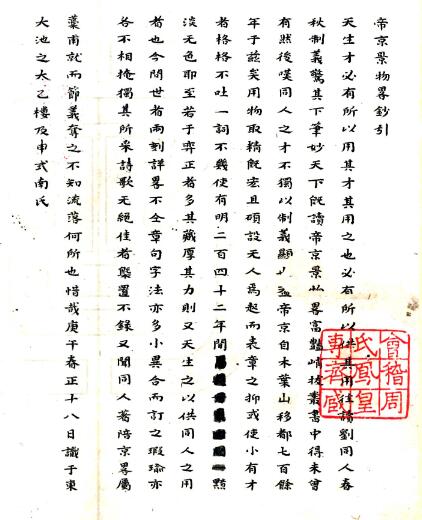 帝京景物畧鈔引
天生才必有所以用其才其用之也必有所以供其用往讀劉同人春
秋制義驚其下筆妙天下旣讀帝京景物畧富豔峭拔叢書中得未曾
有然後嘆同人之才不獨以制義顯也盖帝京自木葉山移都七百餘
年于兹矣用物取精旣宏且碩設无人焉起而表章之抑或使小有才
者格格不吐一詞不幾使有明二百四十二年間 黯
淡无色耶至若于弈正者多其藏厚其力則又天生之以供同人之用
者也今閱世者兩刻詳畧不仝章句字法亦多小異合而訂之瑕瑜亦
各不相掩獨其所采詩歌无絕佳者槩置不録又聞同人著陪京畧屬
藁甫就而節義奪之不知流落何所也惜哉庚午春正十八日識于東
大池之太乙樓及申式南氏
會稽周
氏鳳皇
專齋藏